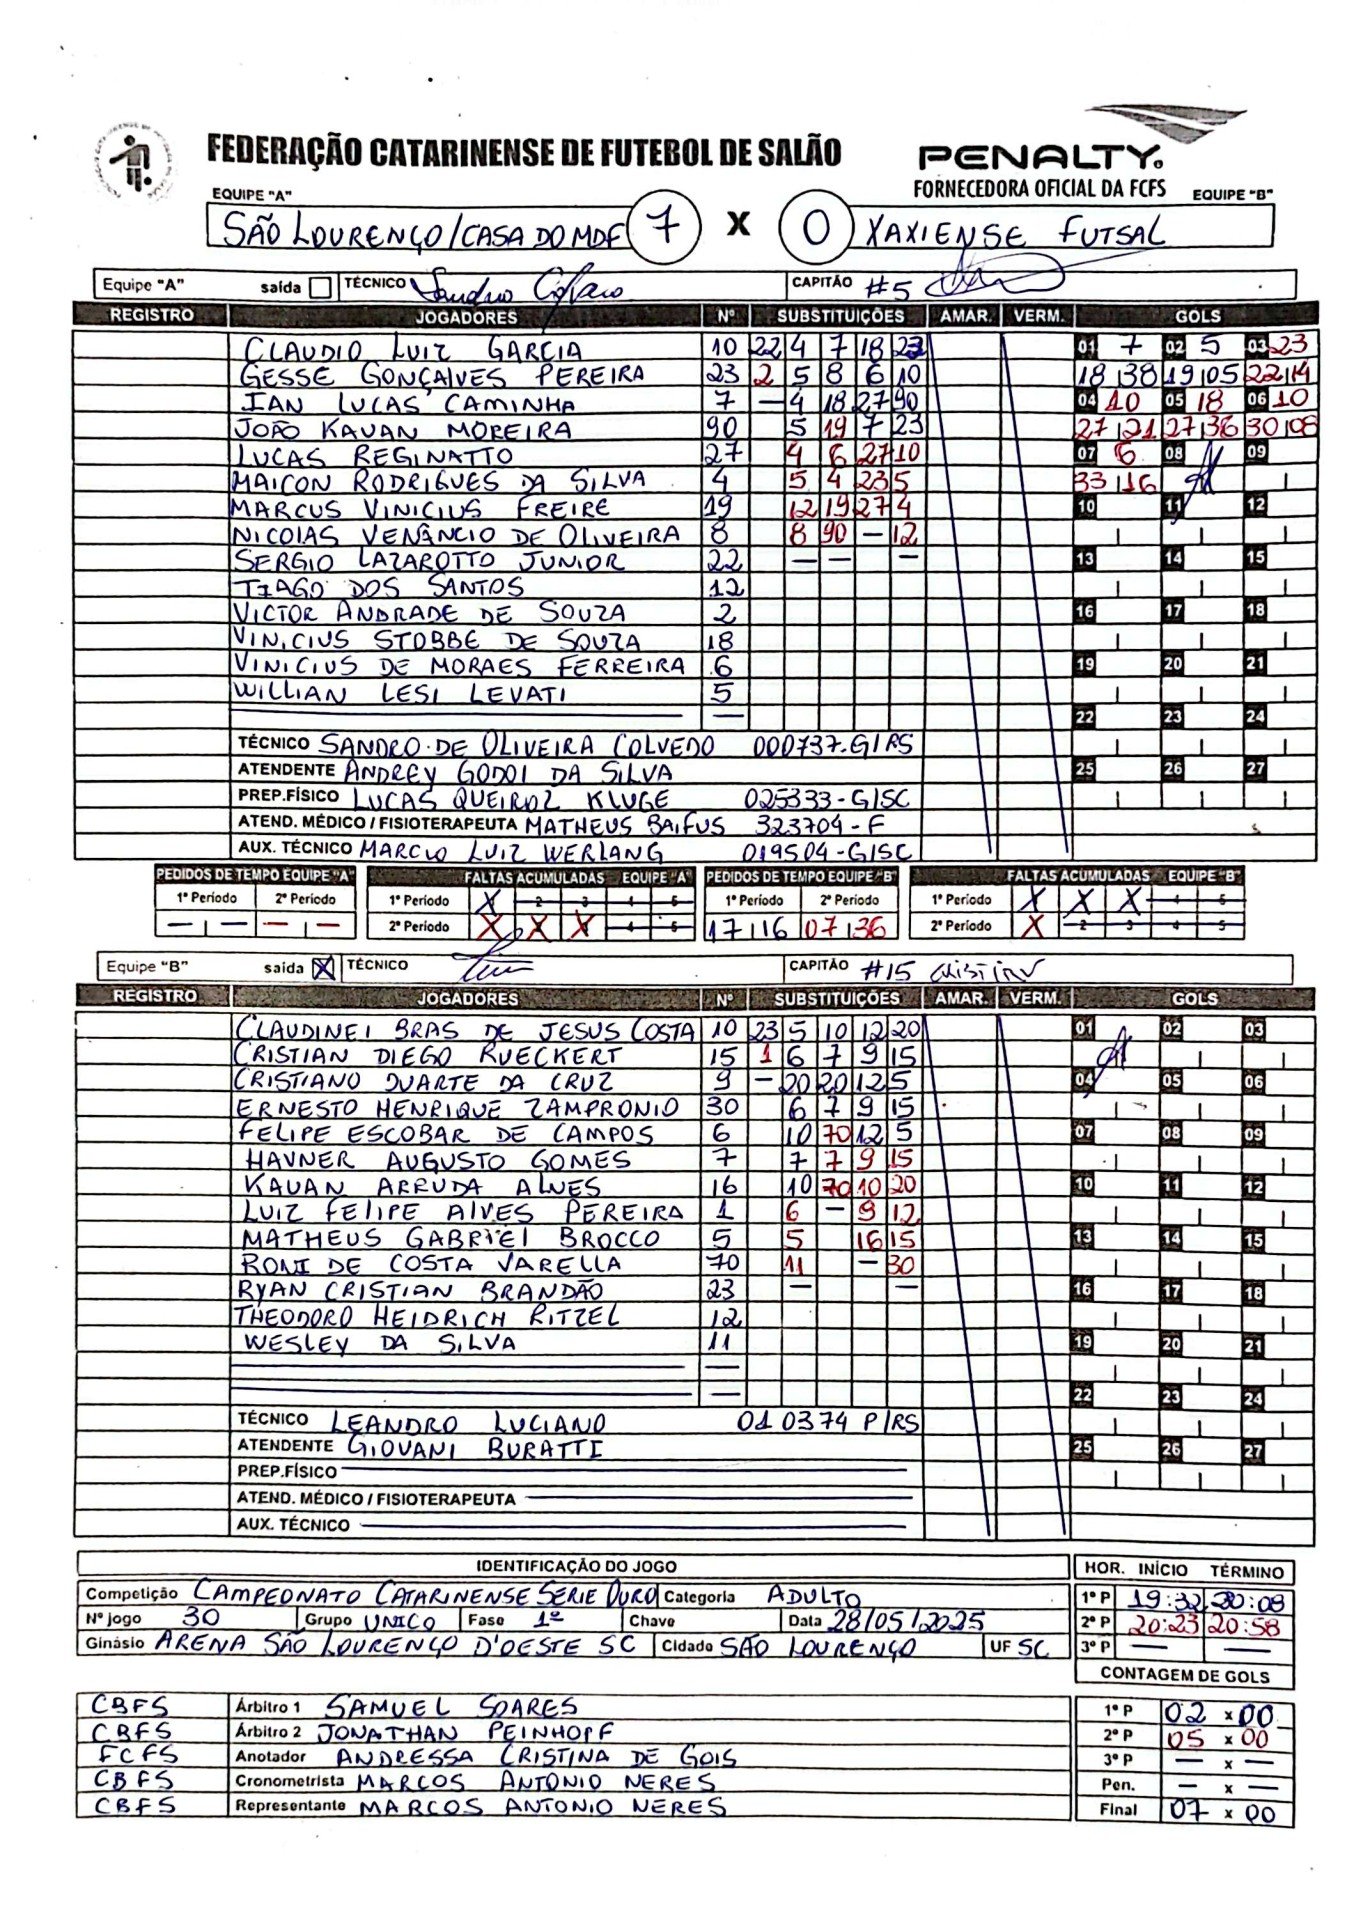 FEDERAÇÃO CATARINENSE DE FUTEBOL DE SALÃO
PENALTY
FORNECEDORA OFICIAL DA FCFS
EQUIPE "A" EQUIPE "B"
SÃO LOURENÇO/CASA DO MDF 7 X 0 XAXIENSE FUTSAL
Equipe "A" saída TÉCNICO CAPITÃO #5
REGISTRO JOGADORES Nº SUBSTITUIÇÕES AMAR. VERM. GOLS
CLAUDIO LUIZ GARCIA 10 22 4 7 18 23 01 7 02 5 03 23
GESSE GONÇALVES PEREIRA 23 2 5 8 6 10 18 38 19 05 22 14
IAN LUCAS CAMINHA 7 — 4 18 27 90 04 10 05 18 06 10
JOÃO KAUAN MOREIRA 90 5 19 7 23 27 21 27 36 30 08
LUCAS REGINATTO 27 4 6 27 10 07 6 08 09
MAICON RODRIGUES DA SILVA 4 5 4 23 5 33 16
MARCUS VINICIUS FREIRE 19 12 19 27 4 10 11 12
NICOLAS VENÂNCIO DE OLIVEIRA 8 8 90 — 12
SERGIO LAZAROTTO JUNIOR 22 — — — 13 14 15
TIAGO DOS SANTOS 12
VICTOR ANDRADE DE SOUZA 2 16 17 18
VINICIUS STOBBE DE SOUZA 18
VINICIUS DE MORAES FERREIRA 6 19 20 21
WILLIAN LESI LEVATI 5
— 22 23 24
TÉCNICO SANDRO DE OLIVEIRA COLVEDO 000737-G/RS
ATENDENTE ANDREY GODOI DA SILVA 25 26 27
PREP.FÍSICO LUCAS QUEIROZ KLUGE 025333-G/SC
ATEND. MÉDICO / FISIOTERAPEUTA MATHEUS BAIFUS 323704-F
AUX. TÉCNICO MARCIO LUIZ WERLANG 019504-G/SC
PEDIDOS DE TEMPO EQUIPE "A" FALTAS ACUMULADAS EQUIPE "A" PEDIDOS DE TEMPO EQUIPE "B" FALTAS ACUMULADAS EQUIPE "B"
1º Período 2º Período 1º Período X 2 3 4 5 1º Período 2º Período 1º Período X X X 4 5
— — — — 2º Período X X X 4 5 17 16 07 36 2º Período X 2 3 4 5
Equipe "B" saída X TÉCNICO CAPITÃO #15
REGISTRO JOGADORES Nº SUBSTITUIÇÕES AMAR. VERM. GOLS
CLAUDINEI BRAS DE JESUS COSTA 10 23 5 10 12 20 01 02 03
CRISTIAN DIEGO RUECKERT 15 1 6 7 9 15
CRISTIANO DUARTE DA CRUZ 9 — 20 20 12 5 04 05 06
ERNESTO HENRIQUE ZAMPRONIO 30 6 7 9 15
FELIPE ESCOBAR DE CAMPOS 6 10 70 12 5 07 08 09
HAVNER AUGUSTO GOMES 7 7 7 9 15
KAUAN ARRUDA ALVES 16 10 70 10 20 10 11 12
LUIZ FELIPE ALVES PEREIRA 1 6 — 9 12
MATHEUS GABRIEL BROCCO 5 5 16 15 13 14 15
RONI DE COSTA VARELLA 70 11 — 30
RYAN CRISTIAN BRANDÃO 23 — — 16 17 18
THEODORO HEIDRICH RITZEL 12
WESLEY DA SILVA 11 19 20 21
—
— 22 23 24
TÉCNICO LEANDRO LUCIANO 010374 P/RS
ATENDENTE GIOVANI BURATTI 25 26 27
PREP.FÍSICO
ATEND. MÉDICO / FISIOTERAPEUTA
AUX. TÉCNICO
IDENTIFICAÇÃO DO JOGO HOR. INÍCIO TÉRMINO
Competição CAMPEONATO CATARINENSE SERIE OURO Categoria ADULTO 1º P 19:32 20:08
Nº jogo 30 Grupo UNICO Fase 1ª Chave Data 28/05/2025 2º P 20:23 20:58
Ginásio ARENA SÃO LOURENÇO D'OESTE SC Cidade SÃO LOURENÇO UF SC 3º P — —
CONTAGEM DE GOLS
CBFS Árbitro 1 SAMUEL SOARES 1º P 02 x 00
CBFS Árbitro 2 JONATHAN PEINHOPF 2º P 05 x 00
FCFS Anotador ANDRESSA CRISTINA DE GOIS 3º P — x —
CBFS Cronometrista MARCOS ANTONIO NERES Pen. — x —
CBFS Representante MARCOS ANTONIO NERES Final 07 x 00